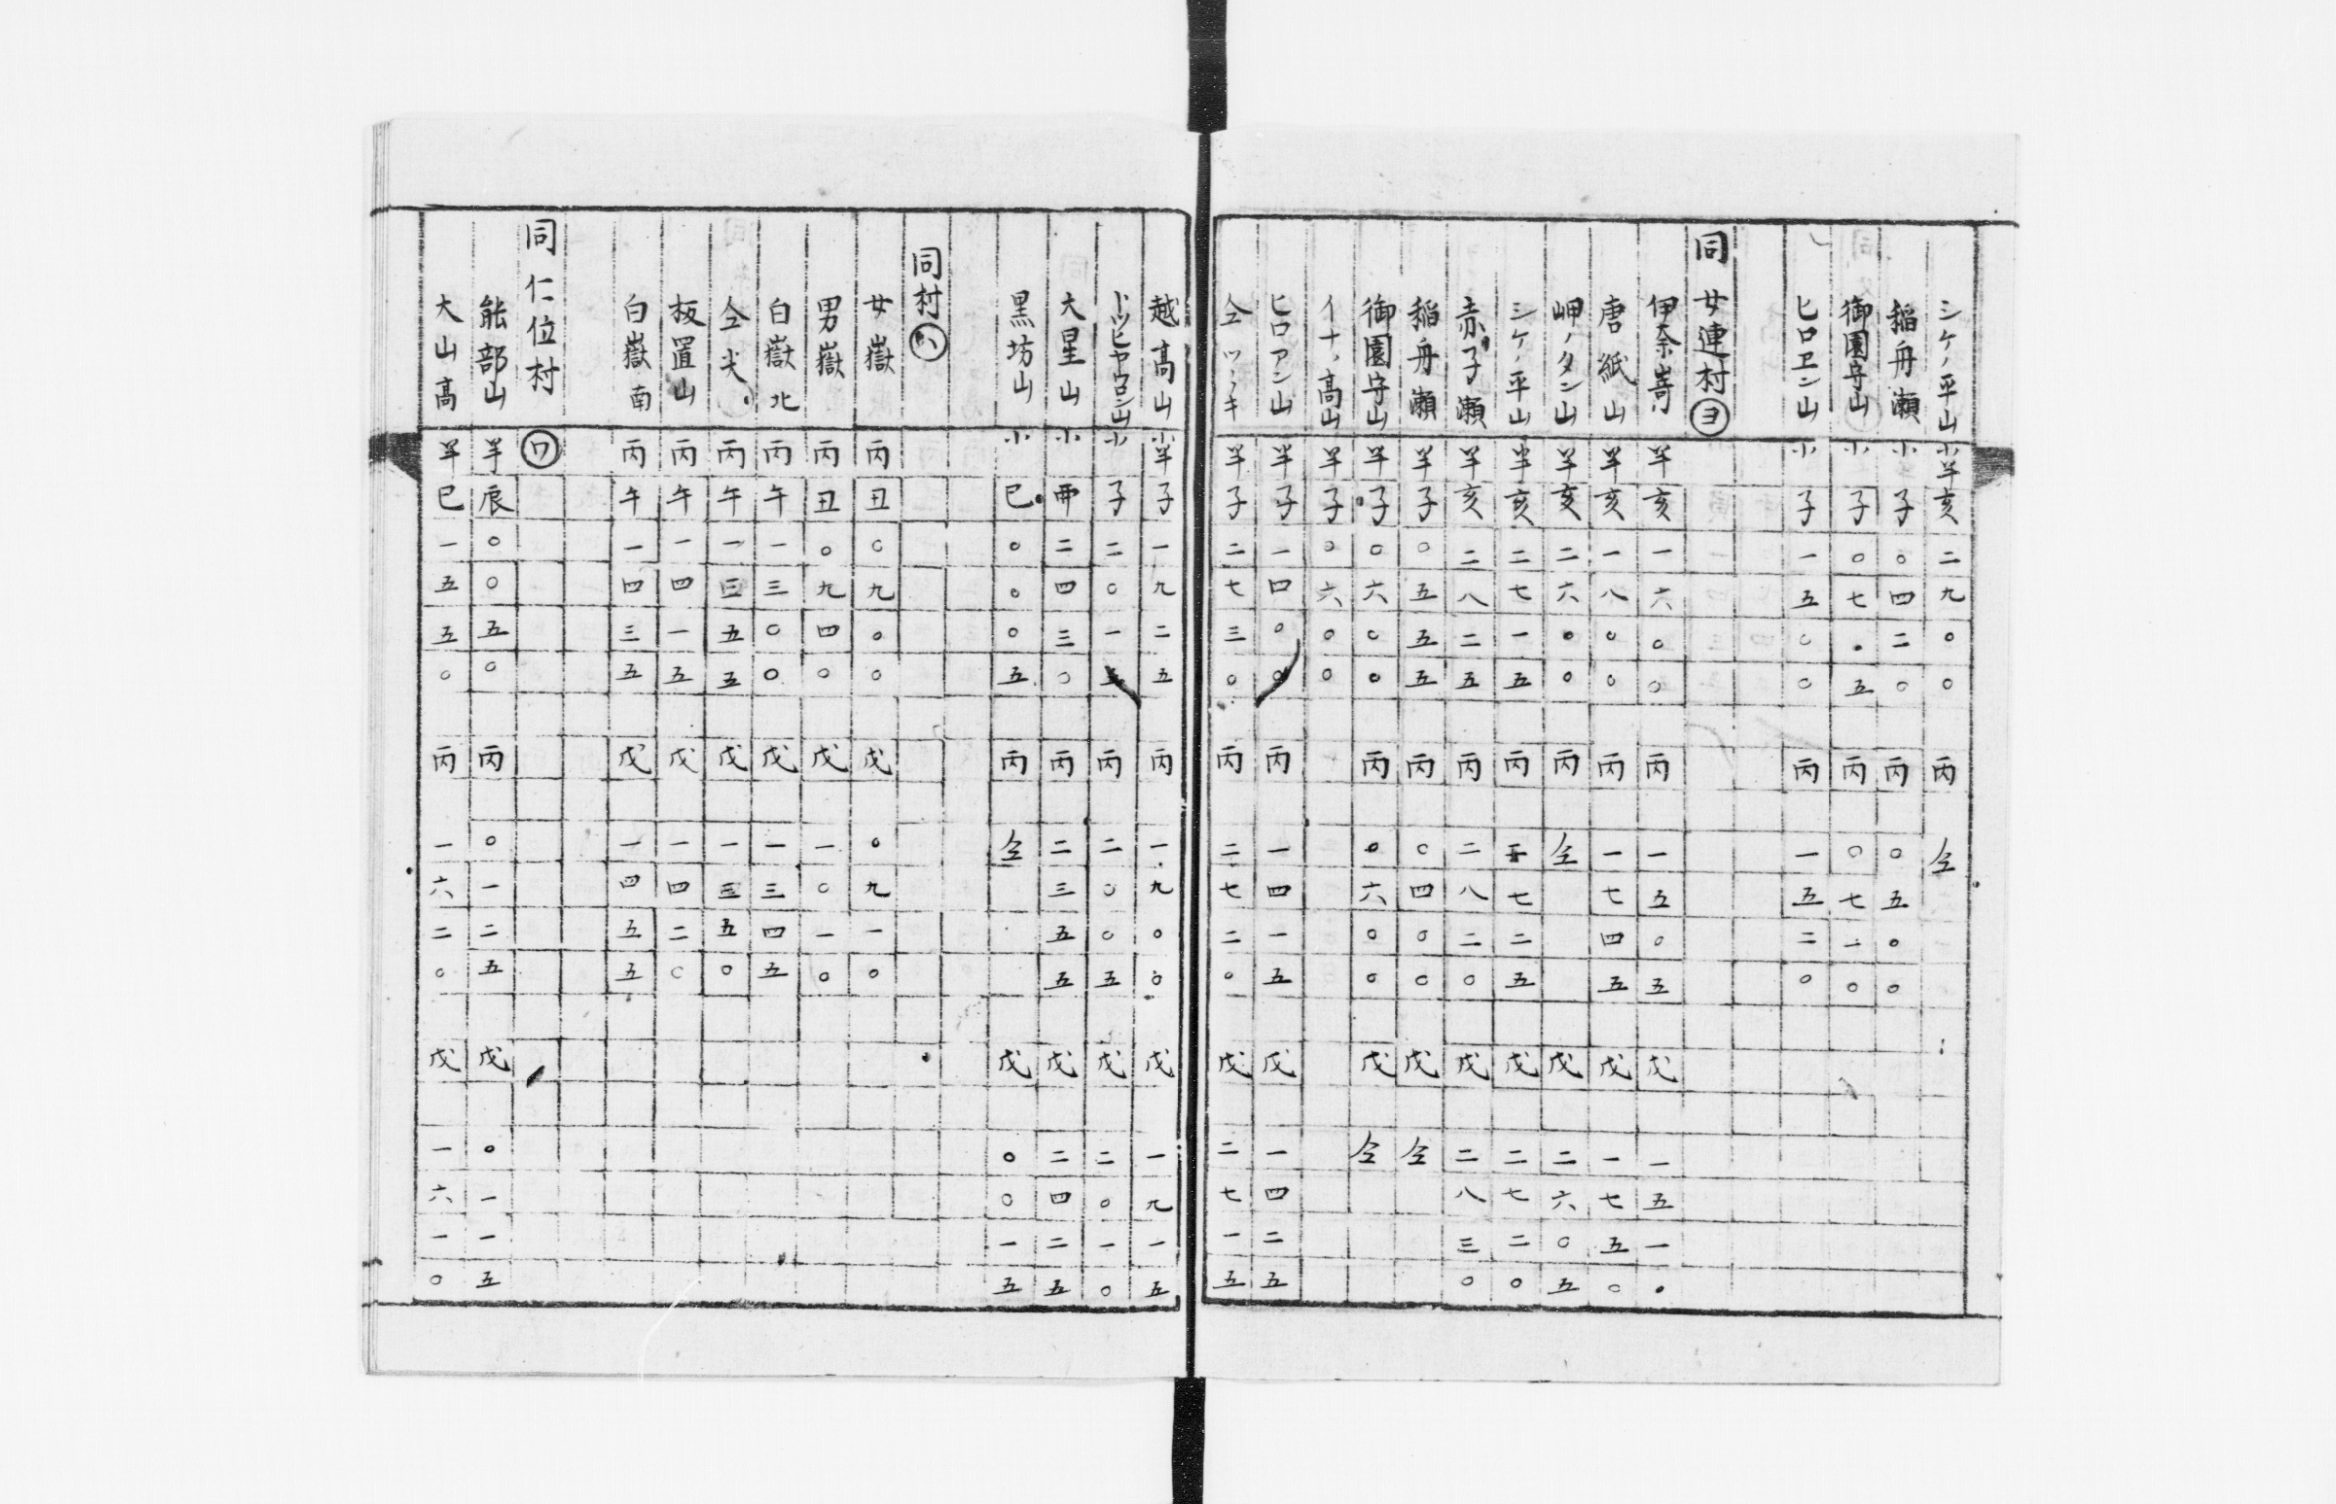 シケノ平山 小半亥二九〇〇 丙仝
稲舟瀬 小子〇四二〇 丙〇五〇〇
御園守山 小子〇七〇五 丙〇七一〇
ヒロエン山 小子一五〇〇 丙一五二〇
同 女連村 ヨ
伊奈嵜 半亥一六〇〇 丙一五〇五 戊一五一〇
唐紙山 半亥一八〇〇 丙一七四五 戊一七五〇
岬ノタン山 半亥二六〇〇 丙仝 戊二六〇五
シケノ平山 半亥二七一五 丙二七二五 戊二七二〇
赤子瀬 半亥二八二五 丙二八二〇 戊二八三〇
稲舟瀬 半子〇五五五 丙〇四〇〇 戊仝
御園守山 半子〇六〇〇 丙〇六〇〇 戊仝
イナ高山 半子〇六〇〇
ヒロアン山 半子一四〇〇 丙一四一五 戊一四二五
仝ツヽキ 半子二七三〇 丙二七二〇 戊二七一五
越高山 小半子一九二五 丙一九〇〇 戊一九一五
トツヒヤクロシ山 小子二〇一五 丙二〇〇五 戊二〇一〇
大星山 小 二四三〇 丙二三五五 戊二四二五
黒坊山 小巳〇〇〇五 丙仝 戊〇〇一五
同村 ハ
女嶽 丙丑〇九〇〇 戊〇九一〇
男嶽 丙丑〇九四〇 戊一〇一〇
白嶽北 丙午一三〇〇 戊一三四五
仝尖 丙午一三五五 戊一三五〇
板置山 丙午一四一五 戊一四二〇
白嶽南 丙午一四三五 戊一四五五
同仁位村 ワ
能部山 半辰〇〇五〇 丙〇一二五 戊〇一一五
大山高 半巳一五五〇 丙一六二〇 戊一六一〇